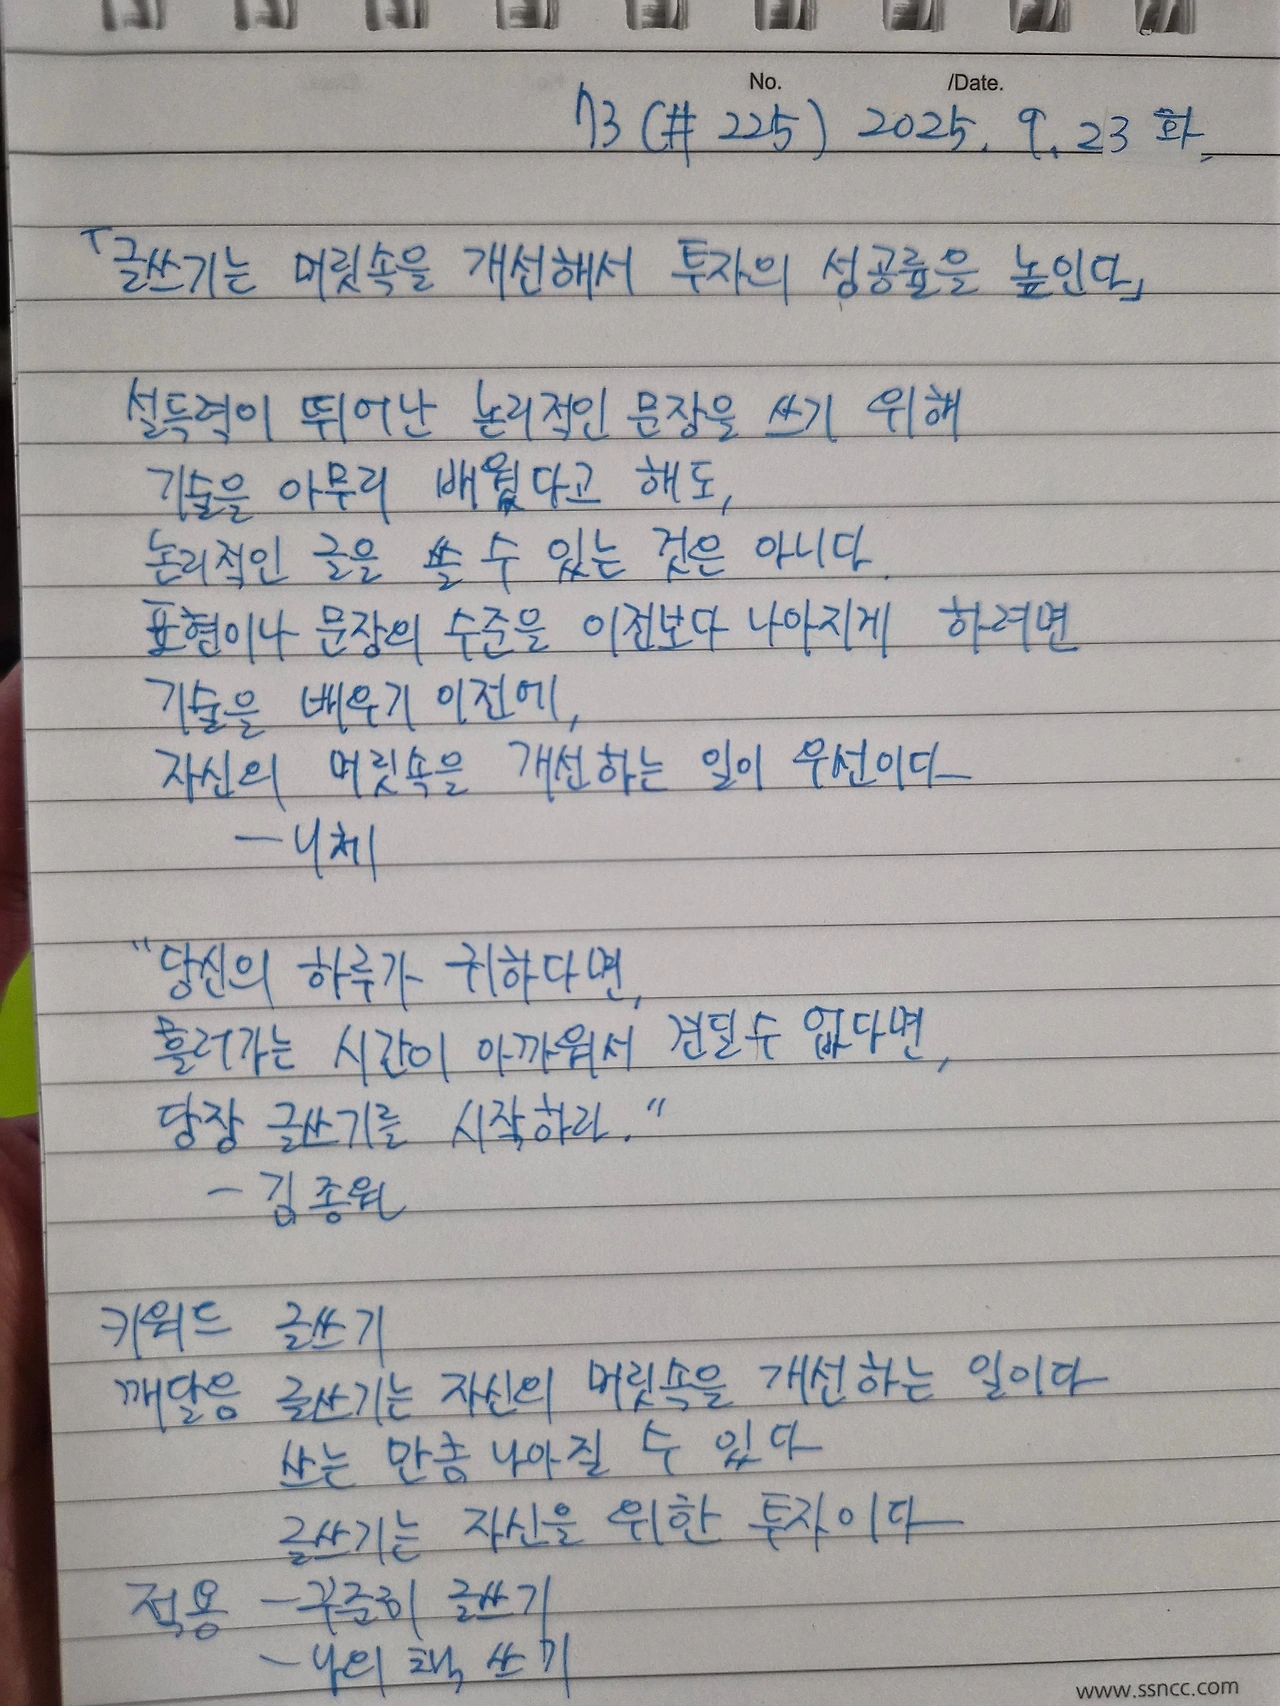 No. /Date.
73 (# 225) 2025. 9. 23 화.
「글쓰기는 머릿속을 개선해서 투자의 성공률을 높인다」
설득력이 뛰어난 논리적인 문장을 쓰기 위해
기술을 아무리 배웠다고 해도,
논리적인 글을 쓸 수 있는 것은 아니다.
표현이나 문장의 수준을 이전보다 나아지게 하려면
기술을 배우기 이전에,
자신의 머릿속을 개선하는 일이 우선이다
- 니체
"당신의 하루가 귀하다면,
흘러가는 시간이 아까워서 견딜수 없다면,
당장 글쓰기를 시작하라."
- 김종원
키워드 글쓰기
깨달음 글쓰기는 자신의 머릿속을 개선하는 일이다
쓰는 만큼 나아질 수 있다
글쓰기는 자신을 위한 투자이다
적용 - 꾸준히 글쓰기
- 나의 책 쓰기
www.ssncc.com